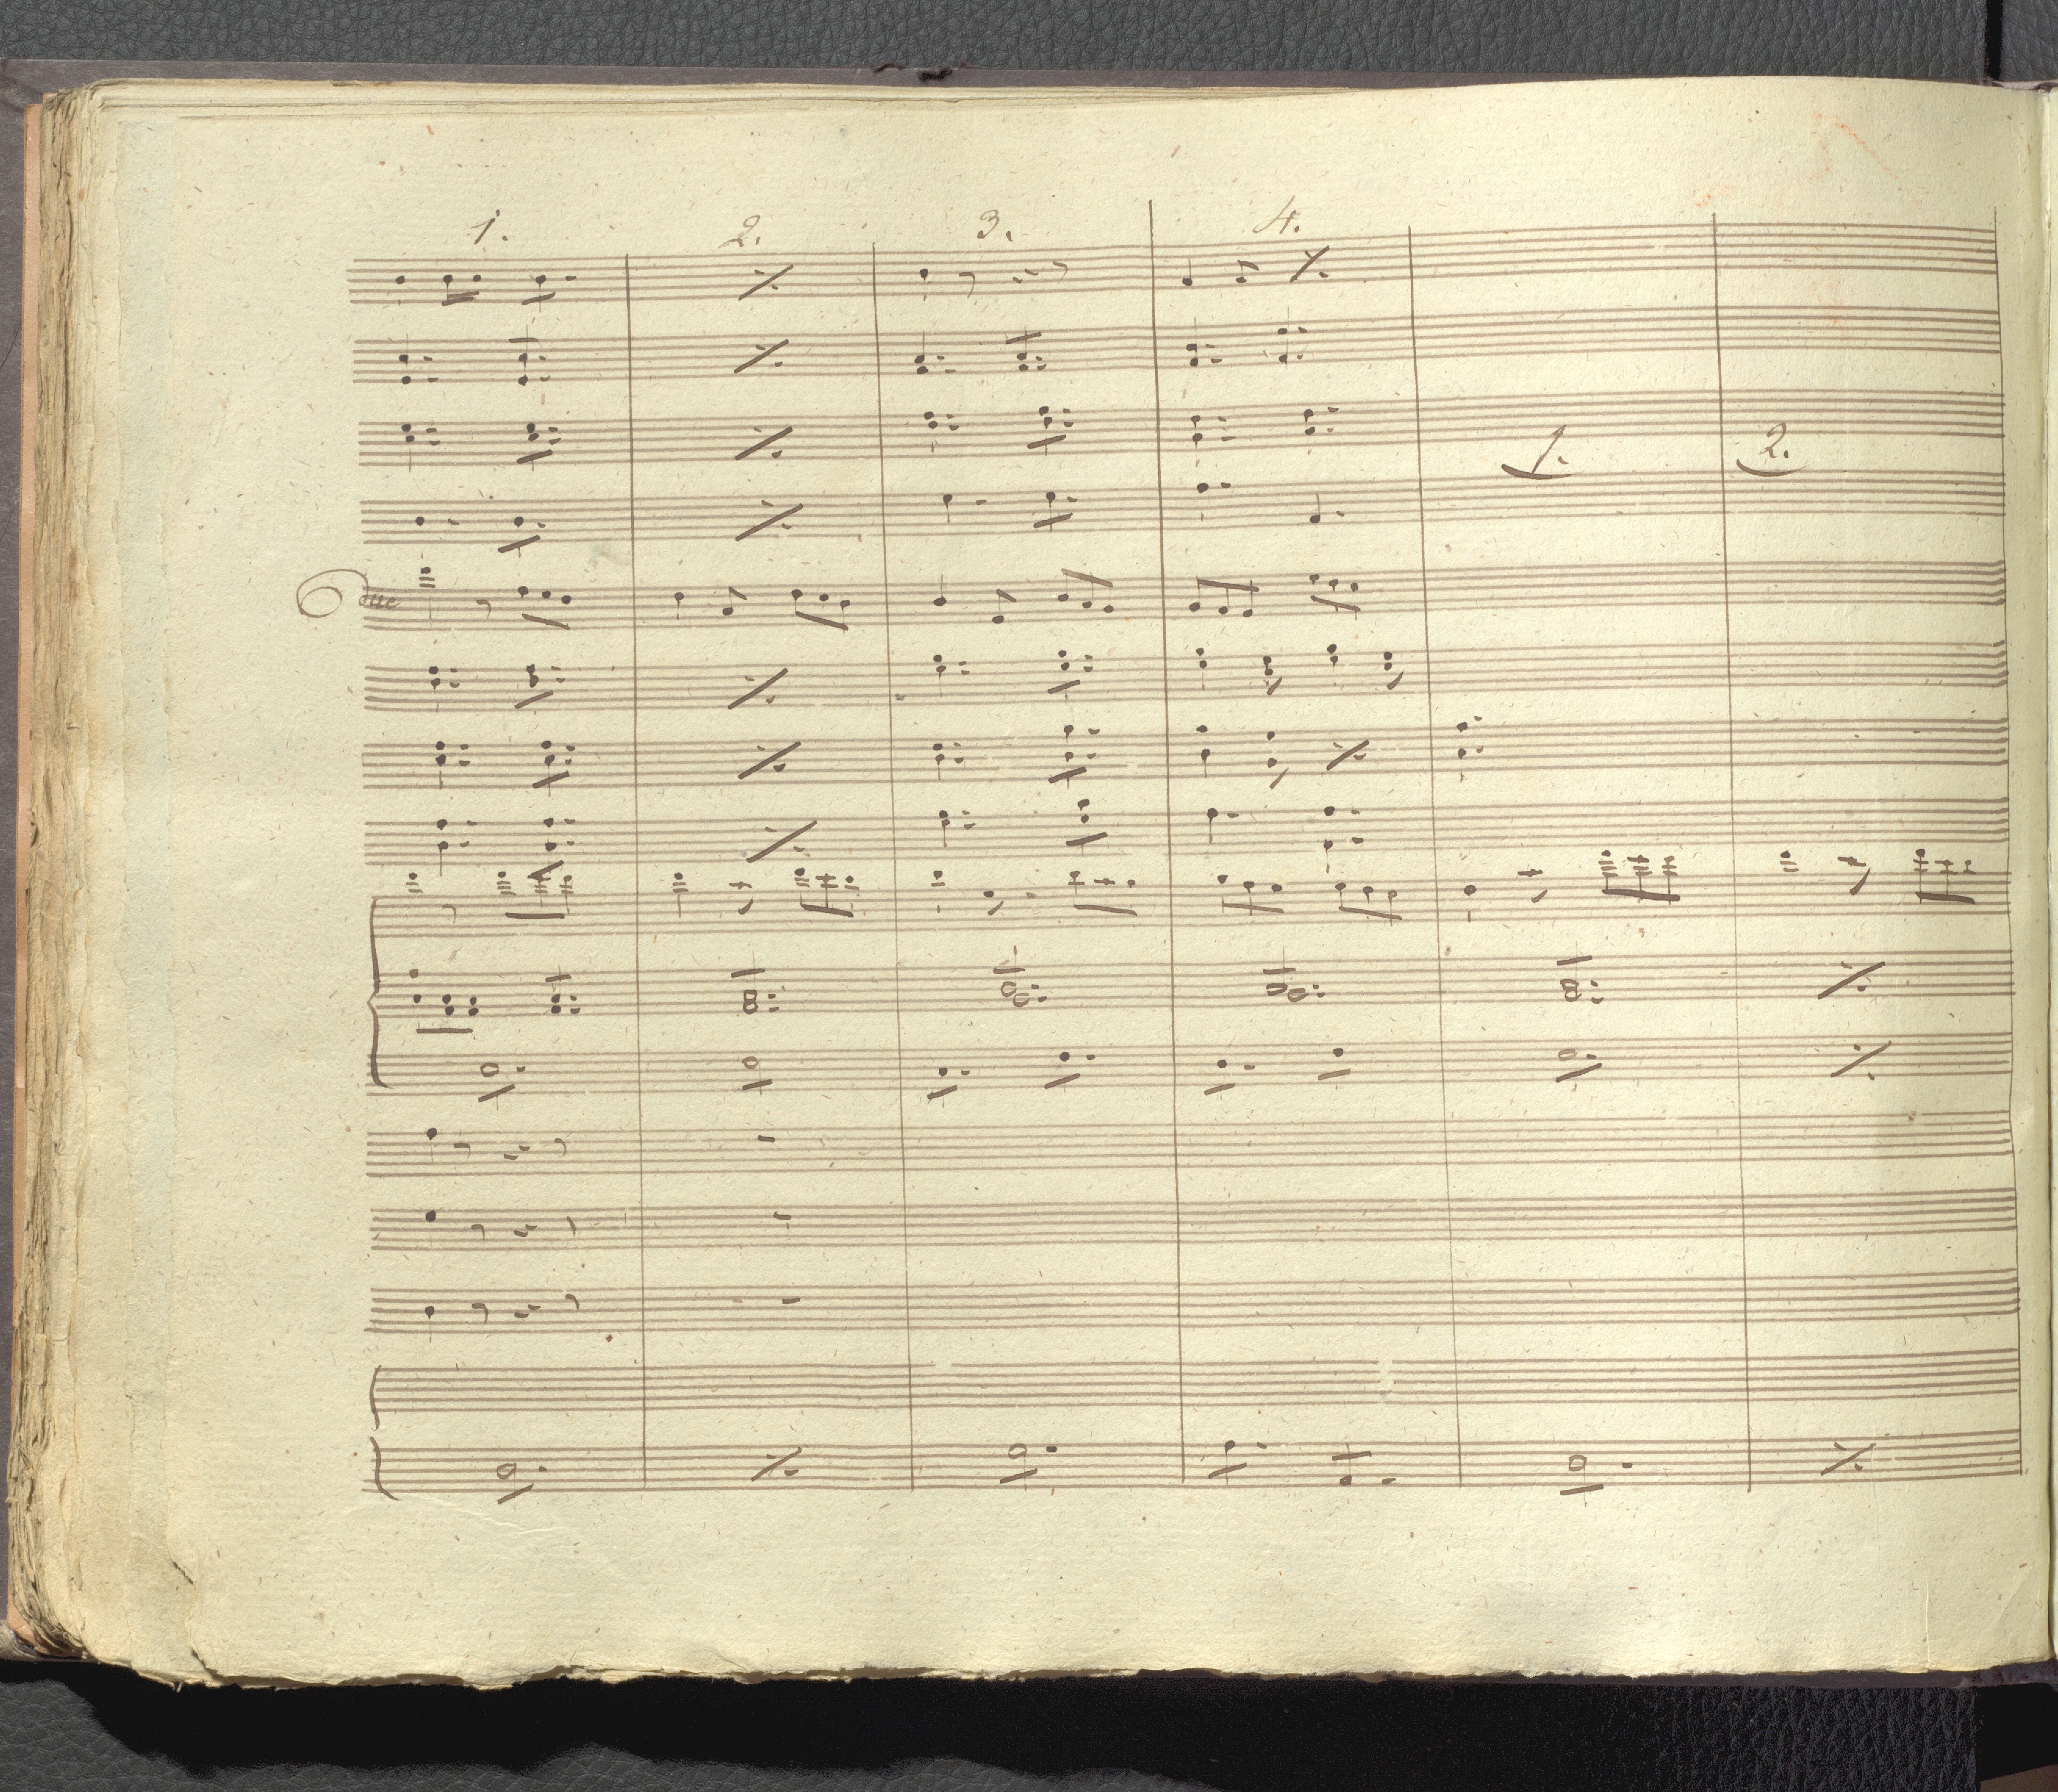 1. 2. 3. 4.
1. 2.